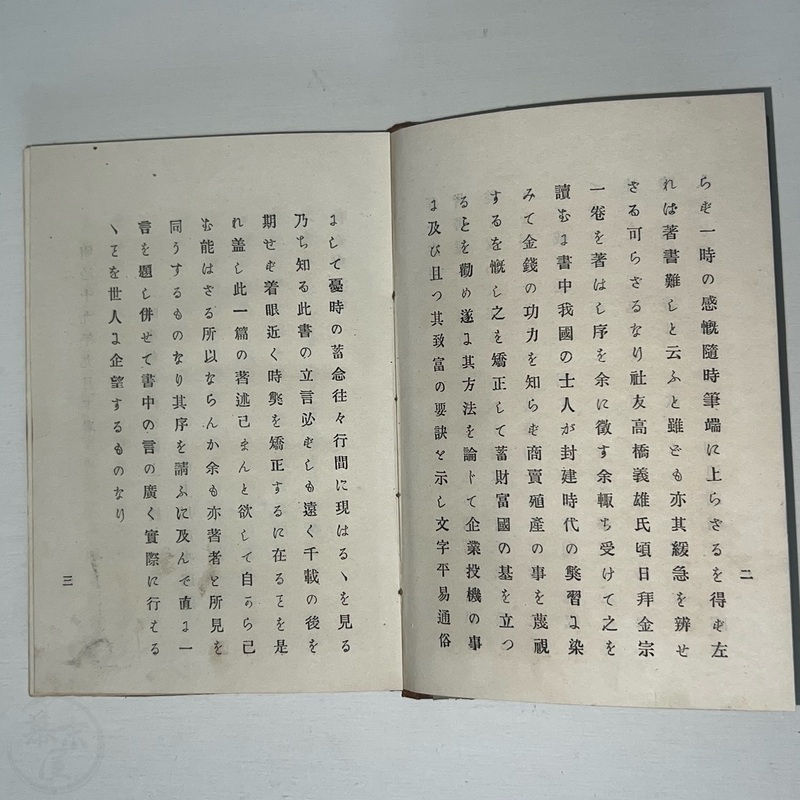 らず一時の感慨隨時筆端に上らざるを得ず左
れば著書難しと云ふと雖ども亦其緩急を辨せ
ざる可らざるなり社友高橋義雄氏頃日拜金宗
一卷を著はし序を余に徴す余輙ち受けて之を
讀むに書中我國の士人が封建時代の弊習に染
みて金錢の功力を知らず商賣殖產の事を蔑視
するを慨し之を矯正して蓄財富國の基を立つ
るとを勸め遂に其方法を論じて企業投機の事
に及び且つ其致富の要訣を示し文字平易通俗
二
にして憂時の蓄念往々行間に現はるヽを見る
乃ち知る此書の立言必ずしも遠く千載の後を
期せず着眼近く時弊を矯正するに在るとを是
れ盖し此一篇の著述已まんと欲して自から已
む能はざる所以ならんか余も亦著者と所見を
同うするものなり其序を請ふに及んで直に一
言を題し併せて書中の言の廣く實際に行はる
ヽとを世人に企望するものなり
三